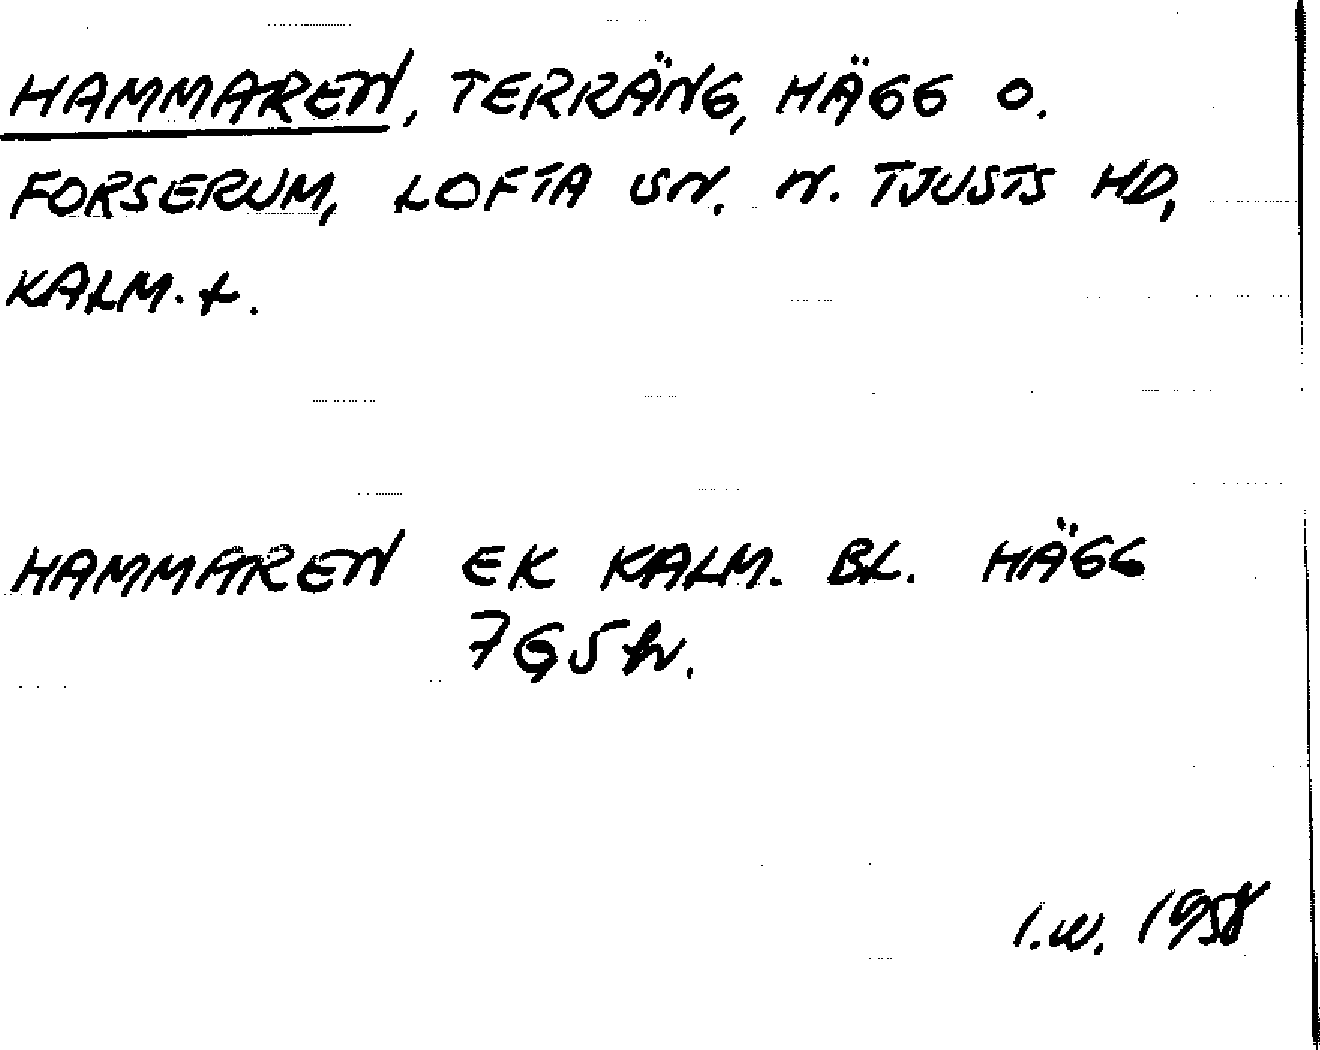 HAMMAREN, TERRÄNG, HÄGG O.
FORSERUM, LOFTA SN. N. TJUSTS HD,
KALM. L.
HAMMAREN EK KALM. BL. HÄGG
765
I.W. 1958